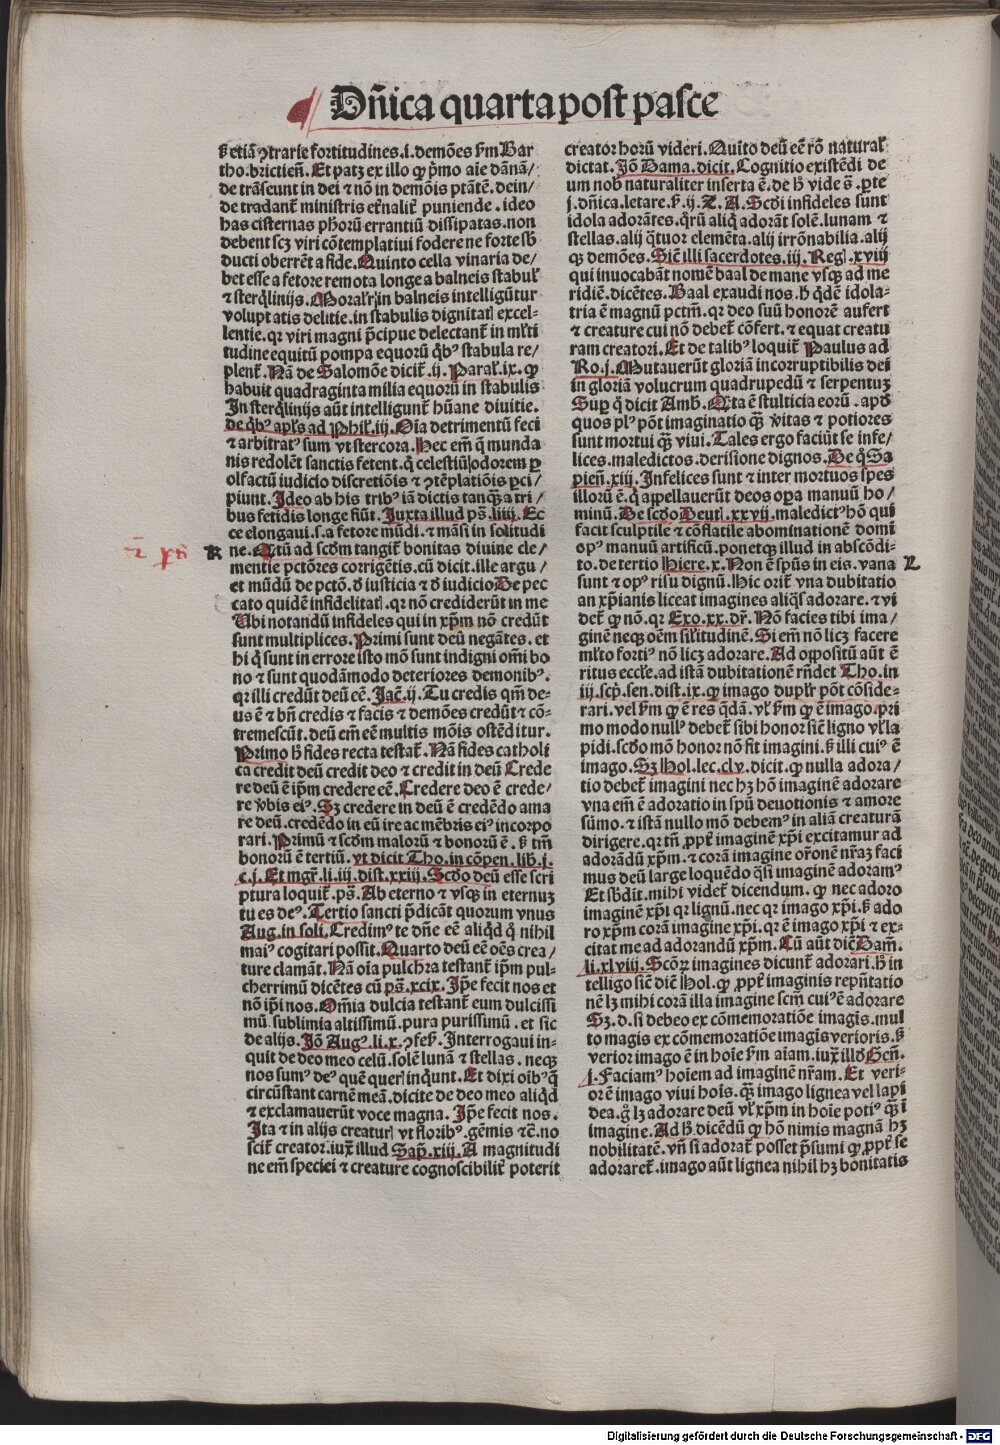 Dn̄ica quarta post pasce
ꝟ etiā ꝯtrarie fortitudines .i. demōes ẜm Bar
tho. brictieñ. Et patꝫ ex illo ꝙ pⁱmo aīe dānā/
de trāseunt in dei ⁊ nō in demōis ptātē. dein/
de tradant᷑ ministris et᷑nalit᷑ puniende. ideo
has cisternas phōrū errantiū dissipatas. non
debent scꝫ viri cōtemplatiui fodere ne forte sb̄
ducti oberrēt a fide. Quinto cella vinaria de/
bet esse a fetore remota longe a balneis stabul᷑
⁊ sterq̄linijs. Moralr̄ in balneis intelligūtur
voluptatis delitie. in stabulis dignitatꝭ excel-
lentie. qꝛ viri magni p̄cipue delectant᷑ in ml᷑ti
tudine equitū pompa equorū qⁱbꝰ stabula re/
plent᷑. Nā de Salomōe dicit᷑ .ij. Paral᷑.ix. ꝙ
habuit quadraginta milia equorū in stabulis
In sterq̄linijs aūt intelligunt᷑ hūane diuitie.
de qⁱbꝰ apl᷑s ad Phil᷑.iij. Oīa detrimentū feci
⁊ arbitratꝰ sum vt stercora. Hec em̄ q̄ munda
nis redolēt sanctis fetent. q̄ celestiū odorem ꝑ
olfactū iudicio discretiōis ⁊ ꝯtēplatiōis ꝑci/
piunt. Ideo ab his tribꝰ iā dictis tanqꝫ a tri/
bus fetidis longe fiūt. Juxta illud ps̄. liiij. Ec
ce elongaui .s. a fetore mūdi. ⁊ māsi in solitudi
ne. Qtū ad scd̄m tangit᷑ bonitas diuine cle/
mentie pctōres corrigētis. cū dicit. ille argu/
et mūdū de pctō. ⁊ iusticia ⁊ ⁊ iudicio De pec
cato quidē infidelitatꝭ. qꝛ nō crediderūt in me
Ubi notandū infideles qui in xp̄m nō credūt
sunt multiplices. Primi sunt deū negātes. et
hi q̄ sunt in errore isto mō sunt indigni om̄i bo
no ⁊ sunt quodāmodo deteriores demonibꝰ.
qꝛ illi credūt deū eē. Jac̄.ij. Tu credis qm̄ de-
us ē ⁊ bn̄ credis ⁊ facis ⁊ demōes credūt ⁊ cō-
tremescūt. deū em̄ eē multis mōis ostēditur.
Primo h̄ fides recta testat᷑. Nā fides catholi
ca credit deū credit deo ⁊ credit in deū Crede
re deū ē ip̄m credere eē. Credere deo ē crede/
re v̄bis eiꝰ. Sꝫ credere in deū ē credēdo ama
re deū. credēdo in eū ire ac mēbris eiꝰ incorpo
rari. Primū ⁊ scd̄m malorū ⁊ bonorū ē. ẜ tm̄
bonorū ē tertiū. vt dicit Tho. in cōpen. lib.j.
c.j. Et mgr̄.li.iij.dist.xxiij. Scd̄o deū esse scri
ptura loquit᷑. ps̄. Ab eterno ⁊ vsqꝫ in eternuꝫ
tu es deꝰ. Tertio sancti p̄dicāt quorum vnus
Aug. in soli. Credimꝰ te dn̄e eē aliqd̄ q̄ nihil
maiꝰ cogitari possit. Quarto deū eē oēs crea/
ture clamāt. Nā oīa pulchra testant᷑ ip̄m pul-
cherrimū dicētes cū ps̄.xcix. Ip̄e fecit nos et
nō ip̄i nos. Om̄ia dulcia testant᷑ eum dulcissi
mū. sublimia altissimū. pura purissimū. et sic
de alijs. Jō Augꝰ.li.x.ꝯfeẜ. Interrogaui in-
quit de deo meo celū. solē lunā ⁊ stellas. neqꝫ
nos sumꝰ deꝰ quē querꝭ inq̄unt. Et dixi oībꝰ q̄
circūstant carnē meā. dicite de deo meo aliqd̄
⁊ exclamauerūt voce magna. Ip̄e fecit nos.
Ita ⁊ in alijs creaturꝭ vt floribꝰ. gēmis ⁊c̄. no
scit᷑ creator. iux̄ illud Sap̄.xiij. A magnitudi
ne em̄ speciei ⁊ creature cognoscibilit᷑ poterit
creator horū videri. Quito deū eē rō natural᷑
dictat. Jō Dama. dicit. Cognitio existēdi de
um nob̄ naturaliter inserta ē. de h̄ vide s̄. ꝑte
j. dn̄ica. letare. ẜ. ij. T. A. Scd̄i infideles sunt
idola adorātes. qrū aliq̄ adorāt solē. lunam ⁊
stellas. alij q̄tuor elemēta. alij irrōnabilia. alij
qꝫ demōes. Sic̄ illi sacerdotes. iij. Regꝭ. xviij
qui inuocabāt nomē baal de mane vsqꝫ ad me
ridiē. dicētes. Baal exaudi nos. h̄ q̄dē idola-
tria ē magnū pctm̄. qꝛ deo suū honorē aufert
⁊ creature cui nō debet᷑ cōfert. ⁊ equat creatu
ram creatori. Et de talibꝰ loquit᷑ Paulus ad
Ro.j. Mutauerūt gloriā incorruptibilis dei
in gloriā volucrum quadrupedū ⁊ serpentuꝫ
Suꝑ q̄ dicit Amb. Qta ē stulticia eorū. apd̄
quos plꝰ pōt imaginatio qꝫ v̄itas ⁊ potiores
sunt mortui qꝫ viui. Tales ergo faciūt se infe/
lices. maledictos. derisione dignos. De q̄ Sa
pien̄.xiij. Infelices sunt ⁊ inter mortuos spes
illorū ē. q̄ appellauerūt deos oꝑa manuū ho/
minū. De scd̄o Deutꝭ.xxvij. maledictꝰ hō qui
facit sculptile ⁊ cōflatile abominationē domī
opꝰ manuū artificū. ponetqꝫ illud in abscōdi-
to. de tertio Hiere.x. Non ē sp̄us in eis. vana
sunt ⁊ opꝰ risu dignū. Hic orit᷑ vna dubitatio
an xp̄ianis liceat imagines aliq̄s adorare. ⁊ vi
det᷑ ꝙ nō. qꝛ Exo.xx. dr̄. Nō facies tibi ima/
ginē neqꝫ oēm sil᷑itudinē. Si em̄ nō licꝫ facere
ml᷑to fortiꝰ nō licꝫ adorare. Ad oppositū aūt ē
ritus eccl᷑e. ad istā dubitationē rn̄det Tho. in
iij. scp̄. sen. dist. ix. ꝙ imago dupl᷑r pōt cōside-
rari. vel ẜm ꝙ ē res q̄dā. vl᷑ ẜm ꝙ ē imago. pri
mo modo nullꝰ debet᷑ sibi honor sic̄ ligno vl᷑ la
pidi. scd̄o mō honor nō fit imagini. ẜ illi cuiꝰ ē
imago. Sꝫ Hol. lec. clv. dicit. ꝙ nulla adora/
tio debet᷑ imagini nec hꝫ hō imaginē adorare
vna em̄ ē adoratio in sp̄u deuotionis ⁊ amore
sūmo. ⁊ istā nullo mō debemꝰ in aliā creaturā
dirigere. qꝛ tn̄. ꝓpt᷑ imaginē xp̄i excitamur ad
adorādū xp̄m. ⁊ corā imagine or̄onē nr̄aꝫ faci
mus deū large loquēdo q̄si imaginē adoramꝰ
Et sb̄dit. mihi videt᷑ dicendum. ꝙ nec adoro
imaginē xp̄i qꝛ lignū. nec qꝛ imago xp̄i. ẜ ado
ro xp̄m corā imagine xp̄i. qꝛ ē imago xp̄i ⁊ ex-
citat me ad adorandū xp̄m. Cū aūt dic̄ Dam̄.
li.xlviij. Sc̄oꝝ imagines dicunt᷑ adorari. h̄ in
telligo sic̄ dic̄ Hol. ꝙ ꝓpt᷑ imaginis rep̄ntatio
nē lꝫ mihi corā illa imagine scm̄ cuiꝰ ē adorare
Sꝫ. d. si debeo ex cōmemoratiōe imagīs. mul
to magis ex cōmemoratiōe imagīs verioris. ẜ
verior imago ē in hoīe ẜm aīam. iux̄ illd̄ Gen̄.
j. Faciamꝰ hoīem ad imaginē nr̄am. Et veri-
or ē imago viui hoīs. qꝫ imago lignea vel lapi
dea. g̊ lꝫ adorare deū vl᷑ xp̄m in hoīe potiꝰ qꝫ ī
imagine. Ad h̄ dicēdū ꝙ hō nimis magnā hꝫ
nobilitatē. vn̄ si adorat᷑ posset p̄sumi ꝙ ꝓpt᷑ se
adoraret᷑. imago aūt lignea nihil hꝫ bonitatis
K
L
Digitalisierung gefördert durch die Deutsche Forschungsgemeinschaft - DFG